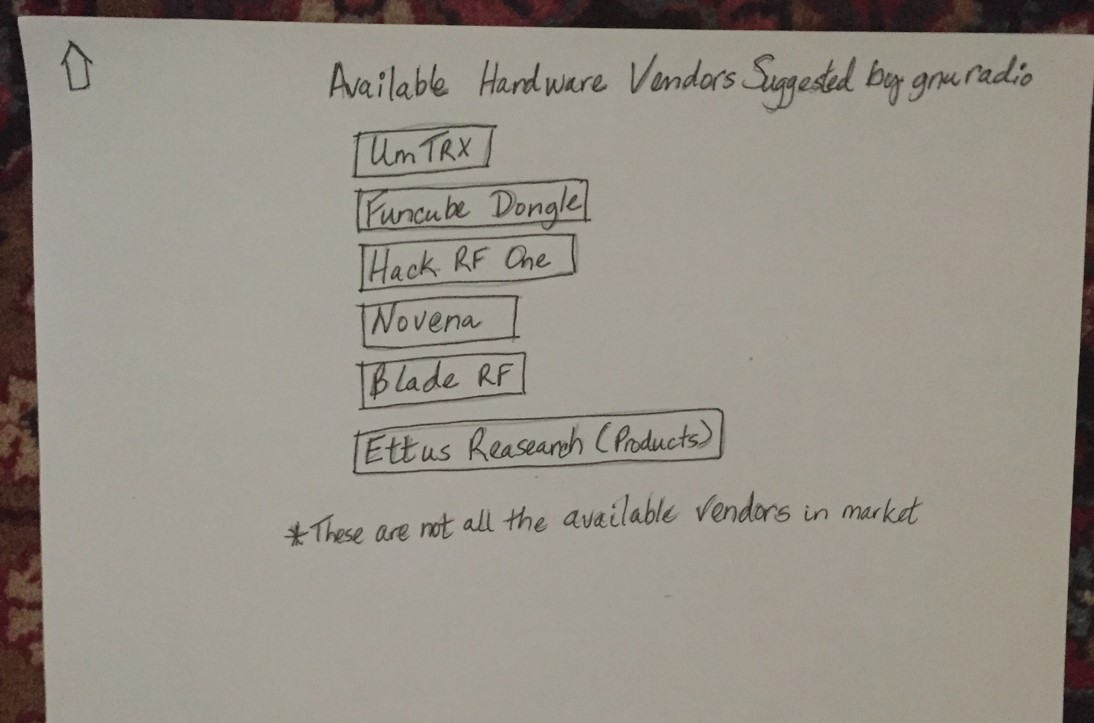 Available Hardware Vendors Suggested by gnuradio
UmTRX
Funcube Dongle
Hack RF One
Novena
Blade RF
Ettus Reasearch (Products)
*These are not all the available vendors in market